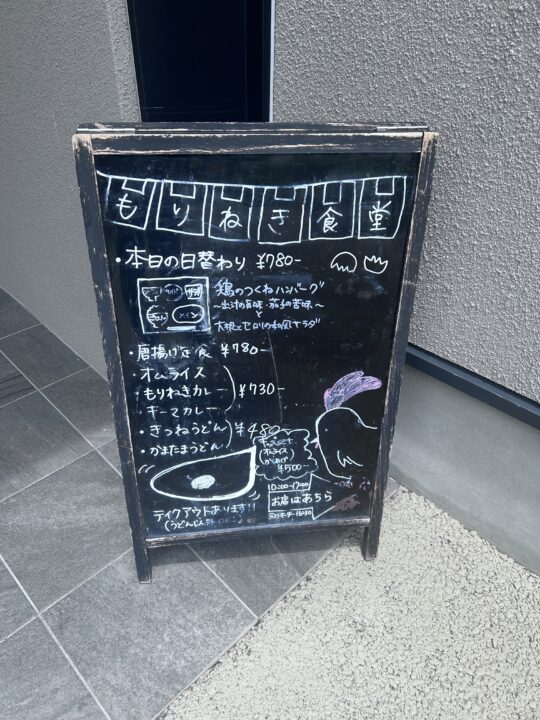 もりねぎ食堂
・本日の日替わり ¥780-
鶏のつくねハンバーグ
～出汁の旨味・茄子の苦味～
と
大根とセロリの和風サラダ
ごはん メイン
・唐揚げ定食 ¥780-
・オムライス
・もりねぎカレー ¥730-
・キーマカレー
・きつねうどん ¥480-
・かまたまうどん
キッズset
オムライス
からあげ
¥500-
10:00-17:00
お店はあちら
ラストオーダー 16:30
テイクアウトあります!!